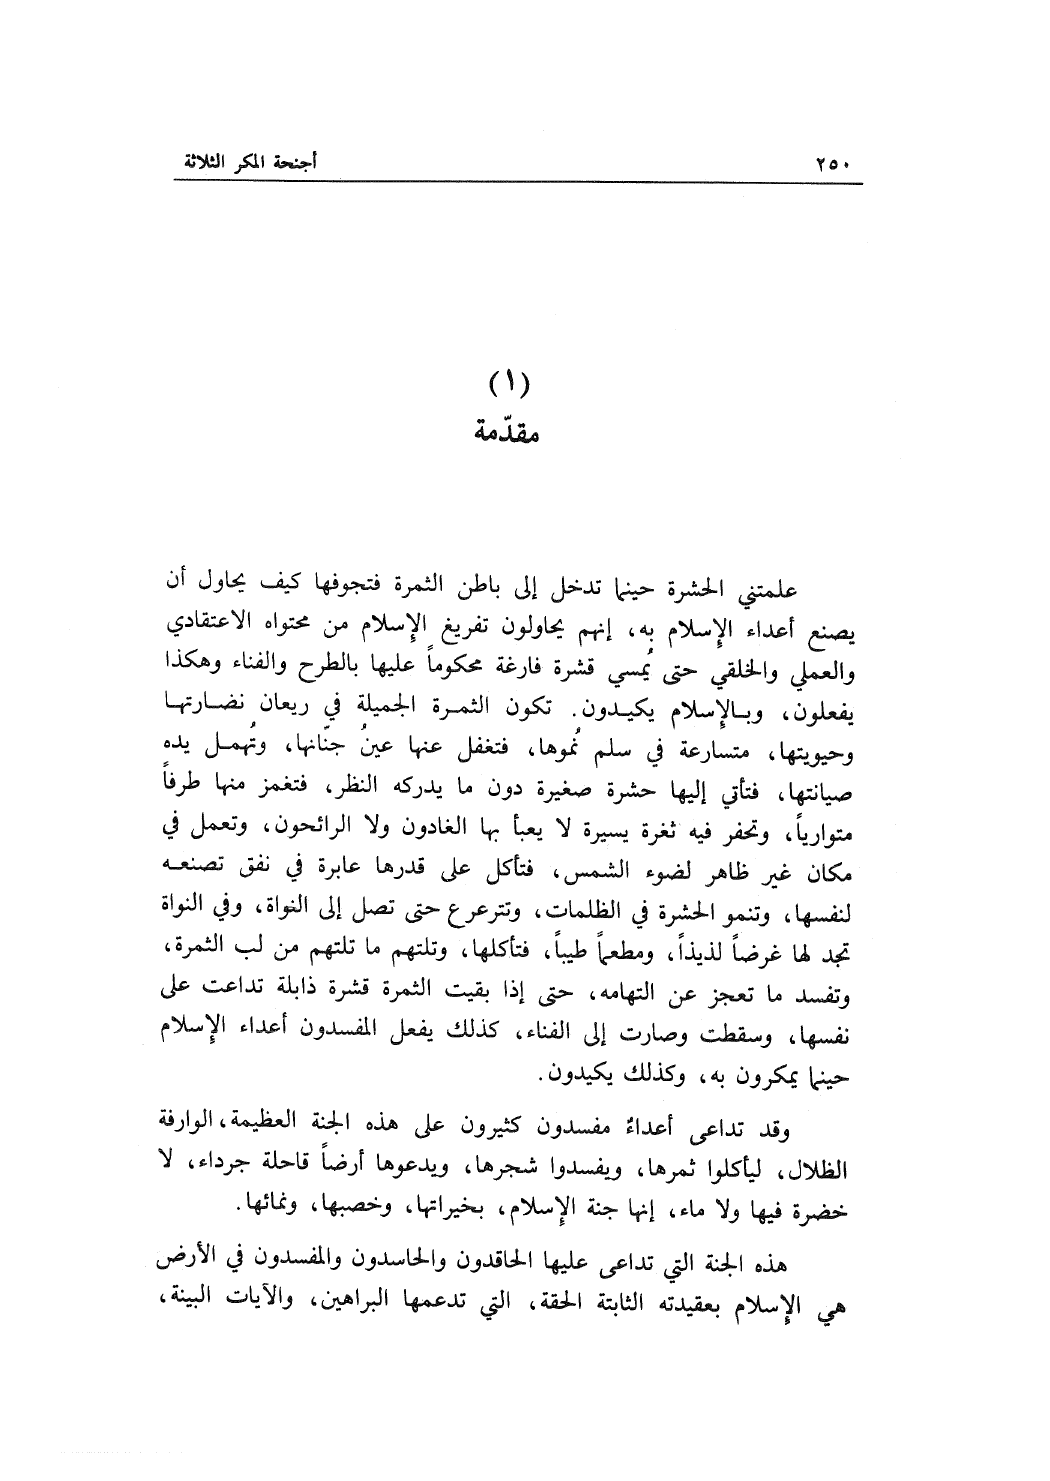 ٢٥٠
أجنحة المكر الثلاثة
(١)
مقدّمة
علمتني الحشرة حينما تدخل إلى باطن الثمرة فتجوفها كيف يحاول أن
يصنع أعداء الإسلام به، إنهم يحاولون تفريغ الإسلام من محتواه الاعتقادي
والعملي والخلقي حتى يُمسي قشرة فارغة محكوماً عليها بالطرح والفناء وهكذا
يفعلون، وبالإسلام يكيدون. تكون الثمرة الجميلة في ريعان نضارتها
وحيويتها، متسارعة في سلم نُموها، فتغفل عنها عينُ جنّانها، وتُهمل يده
صيانتها، فتأتي إليها حشرة صغيرة دون ما يدركه النظر، فتغمز منها طرفاً
متوارياً، وتحفر فيه ثغرة يسيرة لا يعبأ بها الغادون ولا الرائحون، وتعمل في
مكان غير ظاهر لضوء الشمس، فتأكل على قدرها عابرة في نفق تصنعه
لنفسها، وتنمو الحشرة في الظلمات، وتترعرع حتى تصل إلى النواة، وفي النواة
تجد لها غرضاً لذيذاً، ومطعماً طيباً، فتأكلها، وتلتهم ما تلتهم من لب الثمرة،
وتفسد ما تعجز عن التهامه، حتى إذا بقيت الثمرة قشرة ذابلة تداعت على
نفسها، وسقطت وصارت إلى الفناء، كذلك يفعل المفسدون أعداء الإسلام
حينما يمكرون به، وكذلك يكيدون.
وقد تداعى أعداءٌ مفسدون كثيرون على هذه الجنة العظيمة، الوارفة
الظلال، ليأكلوا ثمرها، ويفسدوا شجرها، ويدعوها أرضاً قاحلة جرداء، لا
خضرة فيها ولا ماء، إنها جنة الإسلام، بخيراتها، وخصبها، ونمائها.
هذه الجنة التي تداعى عليها الحاقدون والحاسدون والمفسدون في الأرض
هي الإسلام بعقيدته الثابتة الحقة، التي تدعمها البراهين، والآيات البينة،